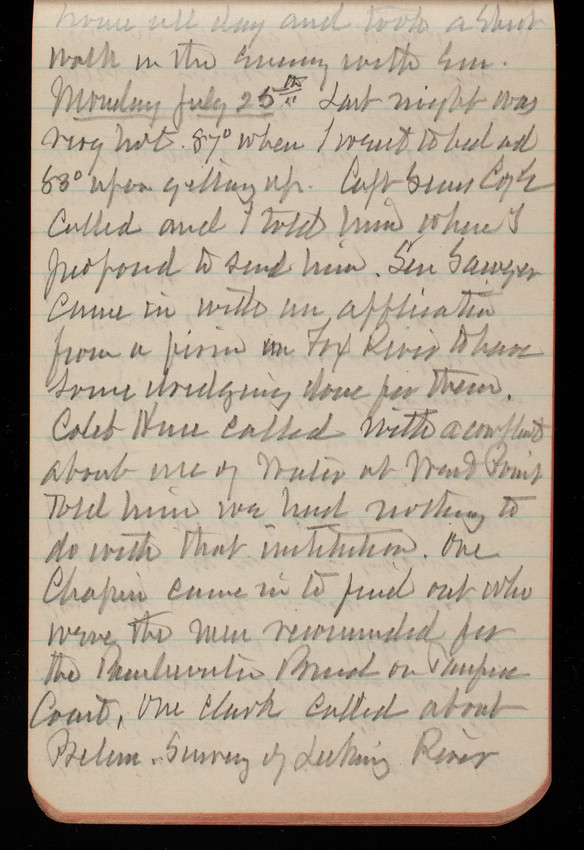 home all day and took a short
walk in the evening with Em.
Monday July 25th Last night was
very hot. 87° when I went to bed ad
83° upon getting up. Capt
called and I told him where I
proposed to send him. Sen Sawyer
came in with an application
from a firm in Fox River to have
some dredging done for them.
Caleb Huse called with a complaint
about use of water at West Point
Told him we had nothing to
do with that institution. One
Chapin came in to find out who
were the men recommended for
the Breakwater Board on
Coast, One Clark called about
Prelim. Survey of Licking River